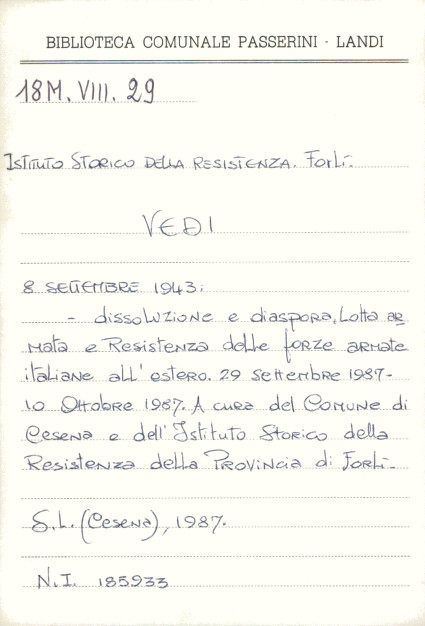 BIBLIOTECA COMUNALE PASSERINI - LANDI
18M. VIII. 29
ISTITUTO STORICO DELLA RESISTENZA. Forlì.
VEDI
8 SETTEMBRE 1943:
- dissoluzione e diaspora, Lotta ar
mata e Resistenza delle forze armate
italiane all'estero. 29 Settembre 1987-
10 Ottobre 1987. A cura del Comune di
Cesena e dell'Istituto Storico della
Resistenza della Provincia di Forlì-
S.L. (Cesena), 1987.
N.I. 185933